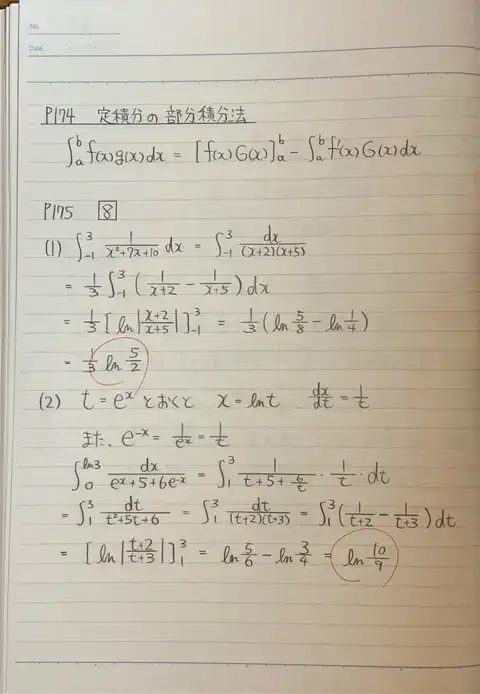 No.
Date
P174 定積分の部分積分法
∫_a^b f(x)g(x)dx = [f(x)G(x)]_a^b - ∫_a^b f'(x)G(x)dx
P175 8
(1) ∫_{-1}^3 1/(x²+7x+10) dx = ∫_{-1}^3 dx/((x+2)(x+5))
= 1/3 ∫_{-1}^3 (1/(x+2) - 1/(x+5)) dx
= 1/3 [ln|(x+2)/(x+5)|]_{-1}^3 = 1/3 (ln 5/8 - ln 1/4)
= 1/3 ln 5/2
(2) t = e^x とおくと x = ln t dx/dt = 1/t
また、 e^{-x} = 1/e^x = 1/t
∫_0^{ln3} dx/(e^x+5+6e^{-x}) = ∫_1^3 1/(t+5+6/t) · 1/t · dt
= ∫_1^3 dt/(t²+5t+6) = ∫_1^3 dt/((t+2)(t+3)) = ∫_1^3 (1/(t+2) - 1/(t+3)) dt
= [ln|(t+2)/(t+3)|]_1^3 = ln 5/6 - ln 3/4 = ln 10/9